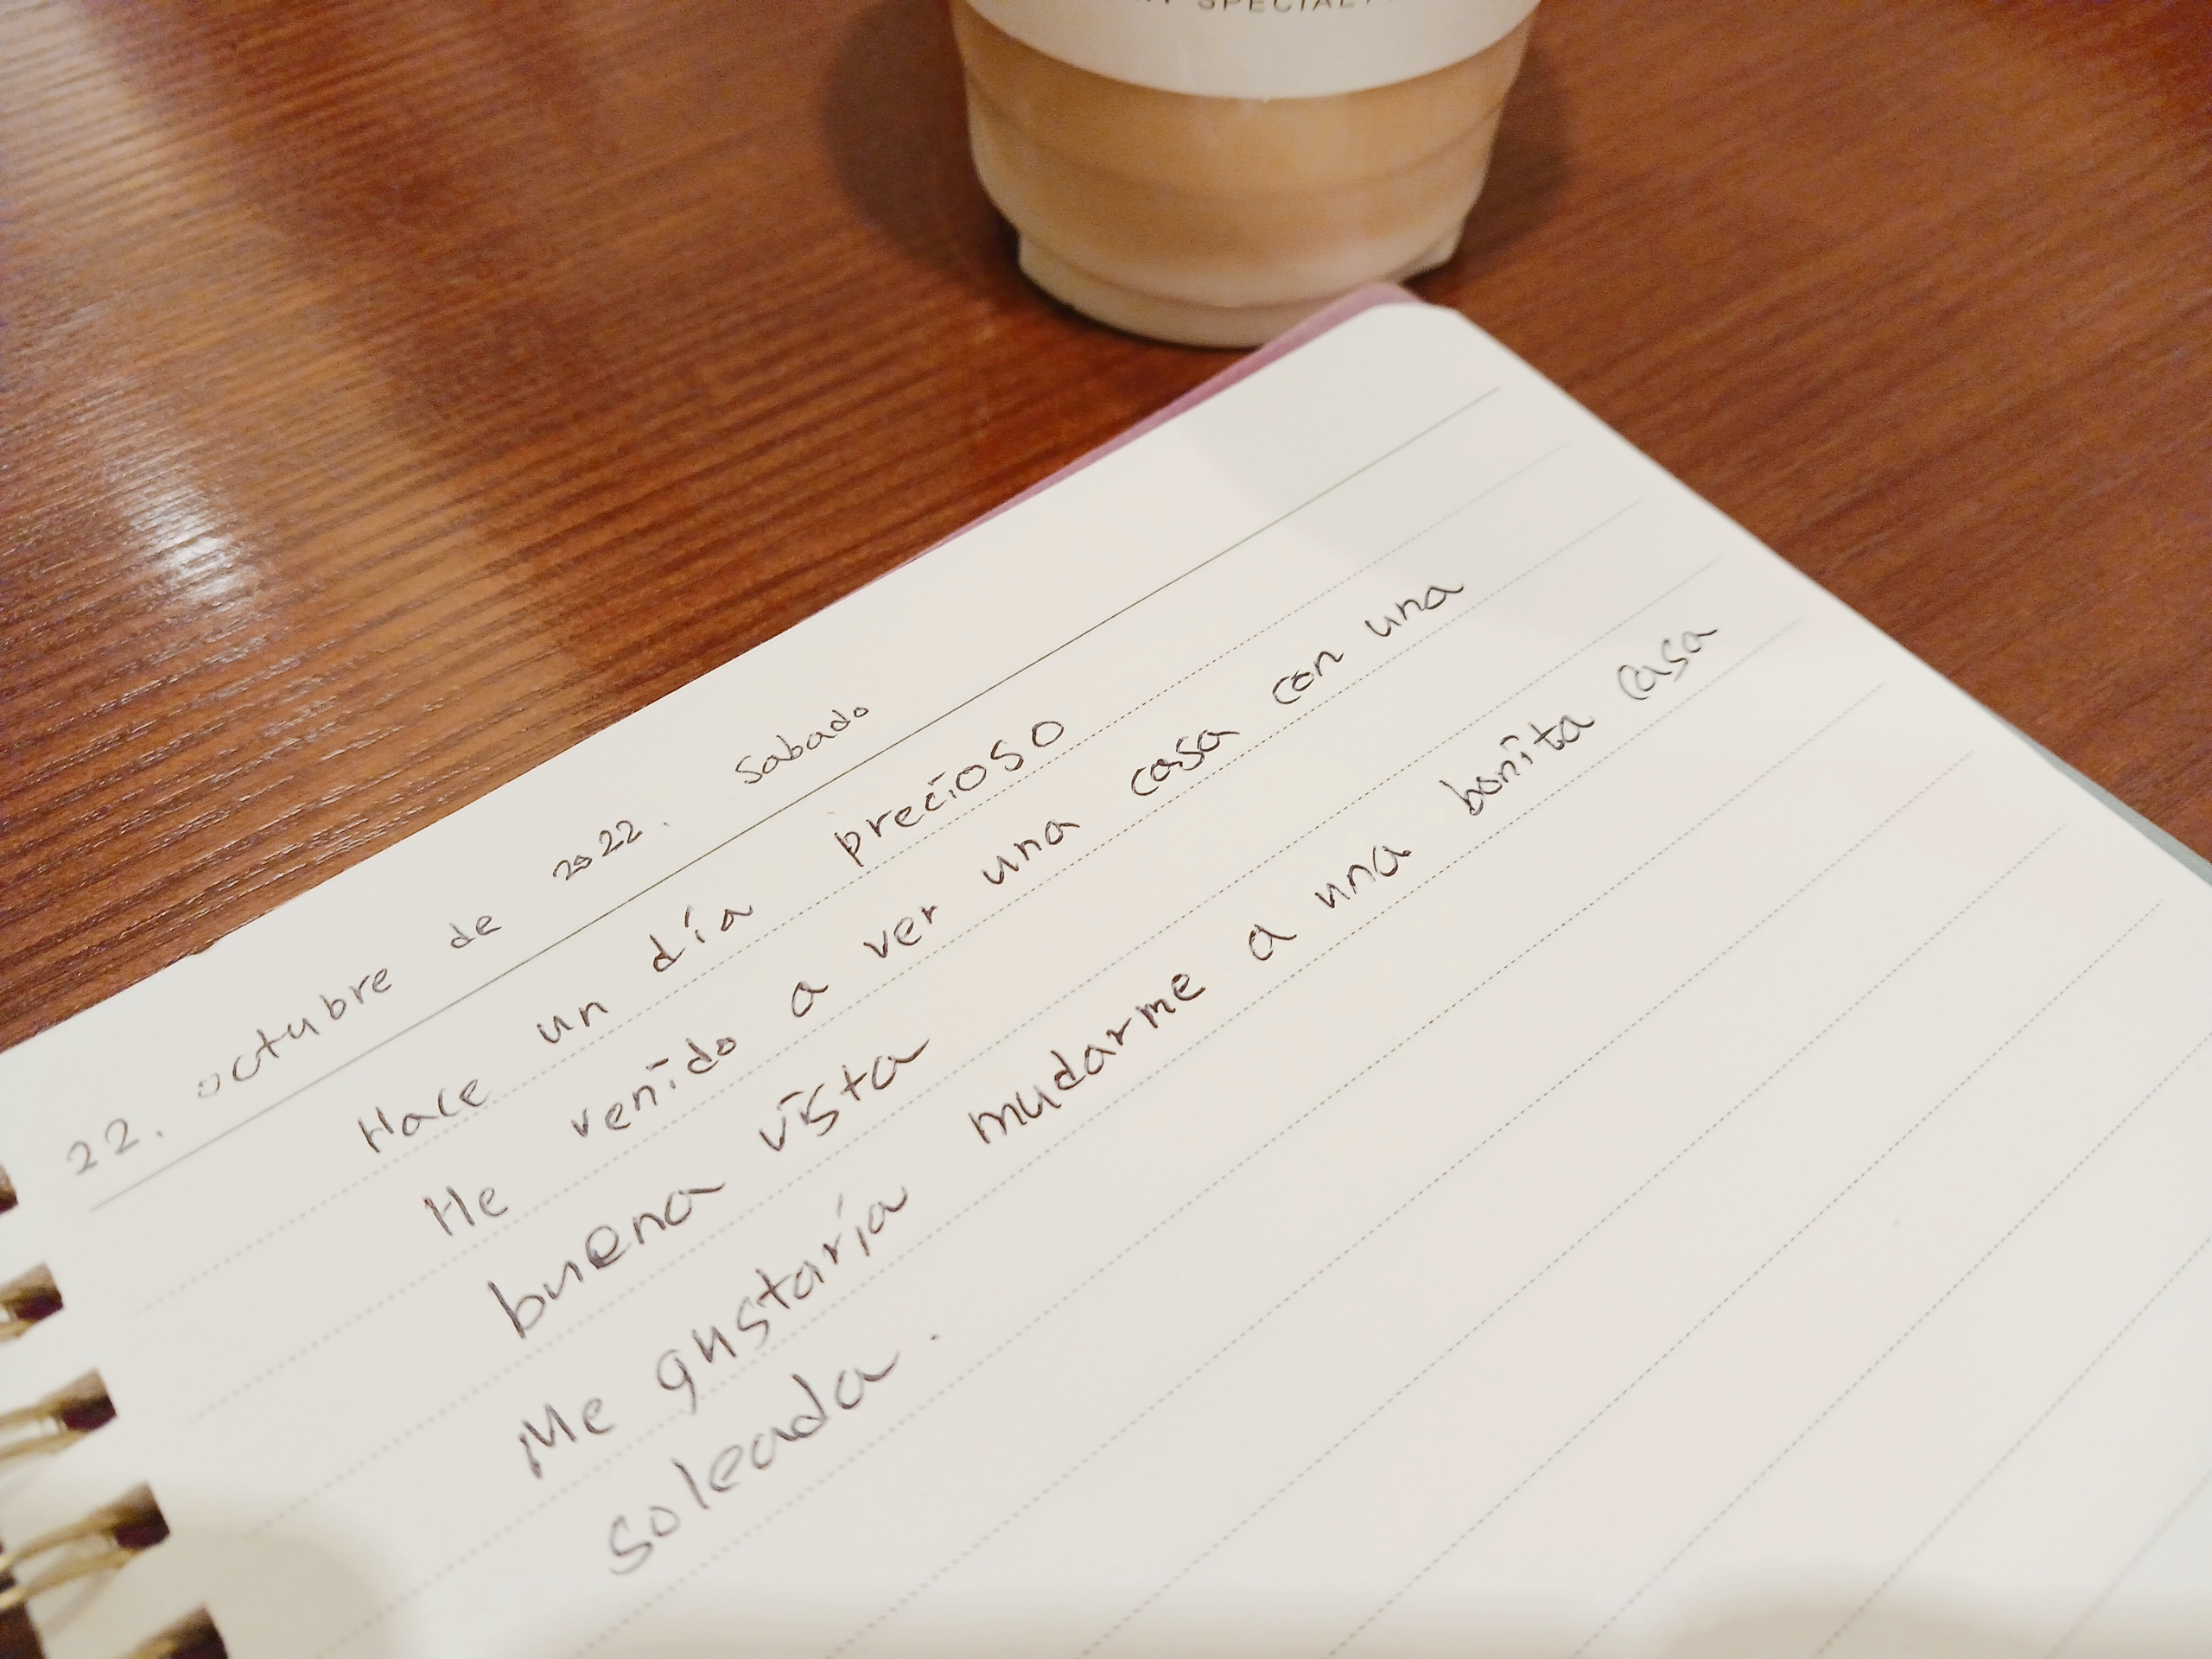 SPECIAL
22. octubre de 2022. sabado
Hace un día precioso
He venido a ver una casa con una
buena vista
Me gustaría mudarme a una bonita casa
soleada.